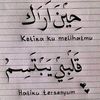 حِيْنَ أَرَاكَ
Ketika ku melihatmu
قَلْبِيْ يَبْتَسِمُ
Hatiku tersenyum